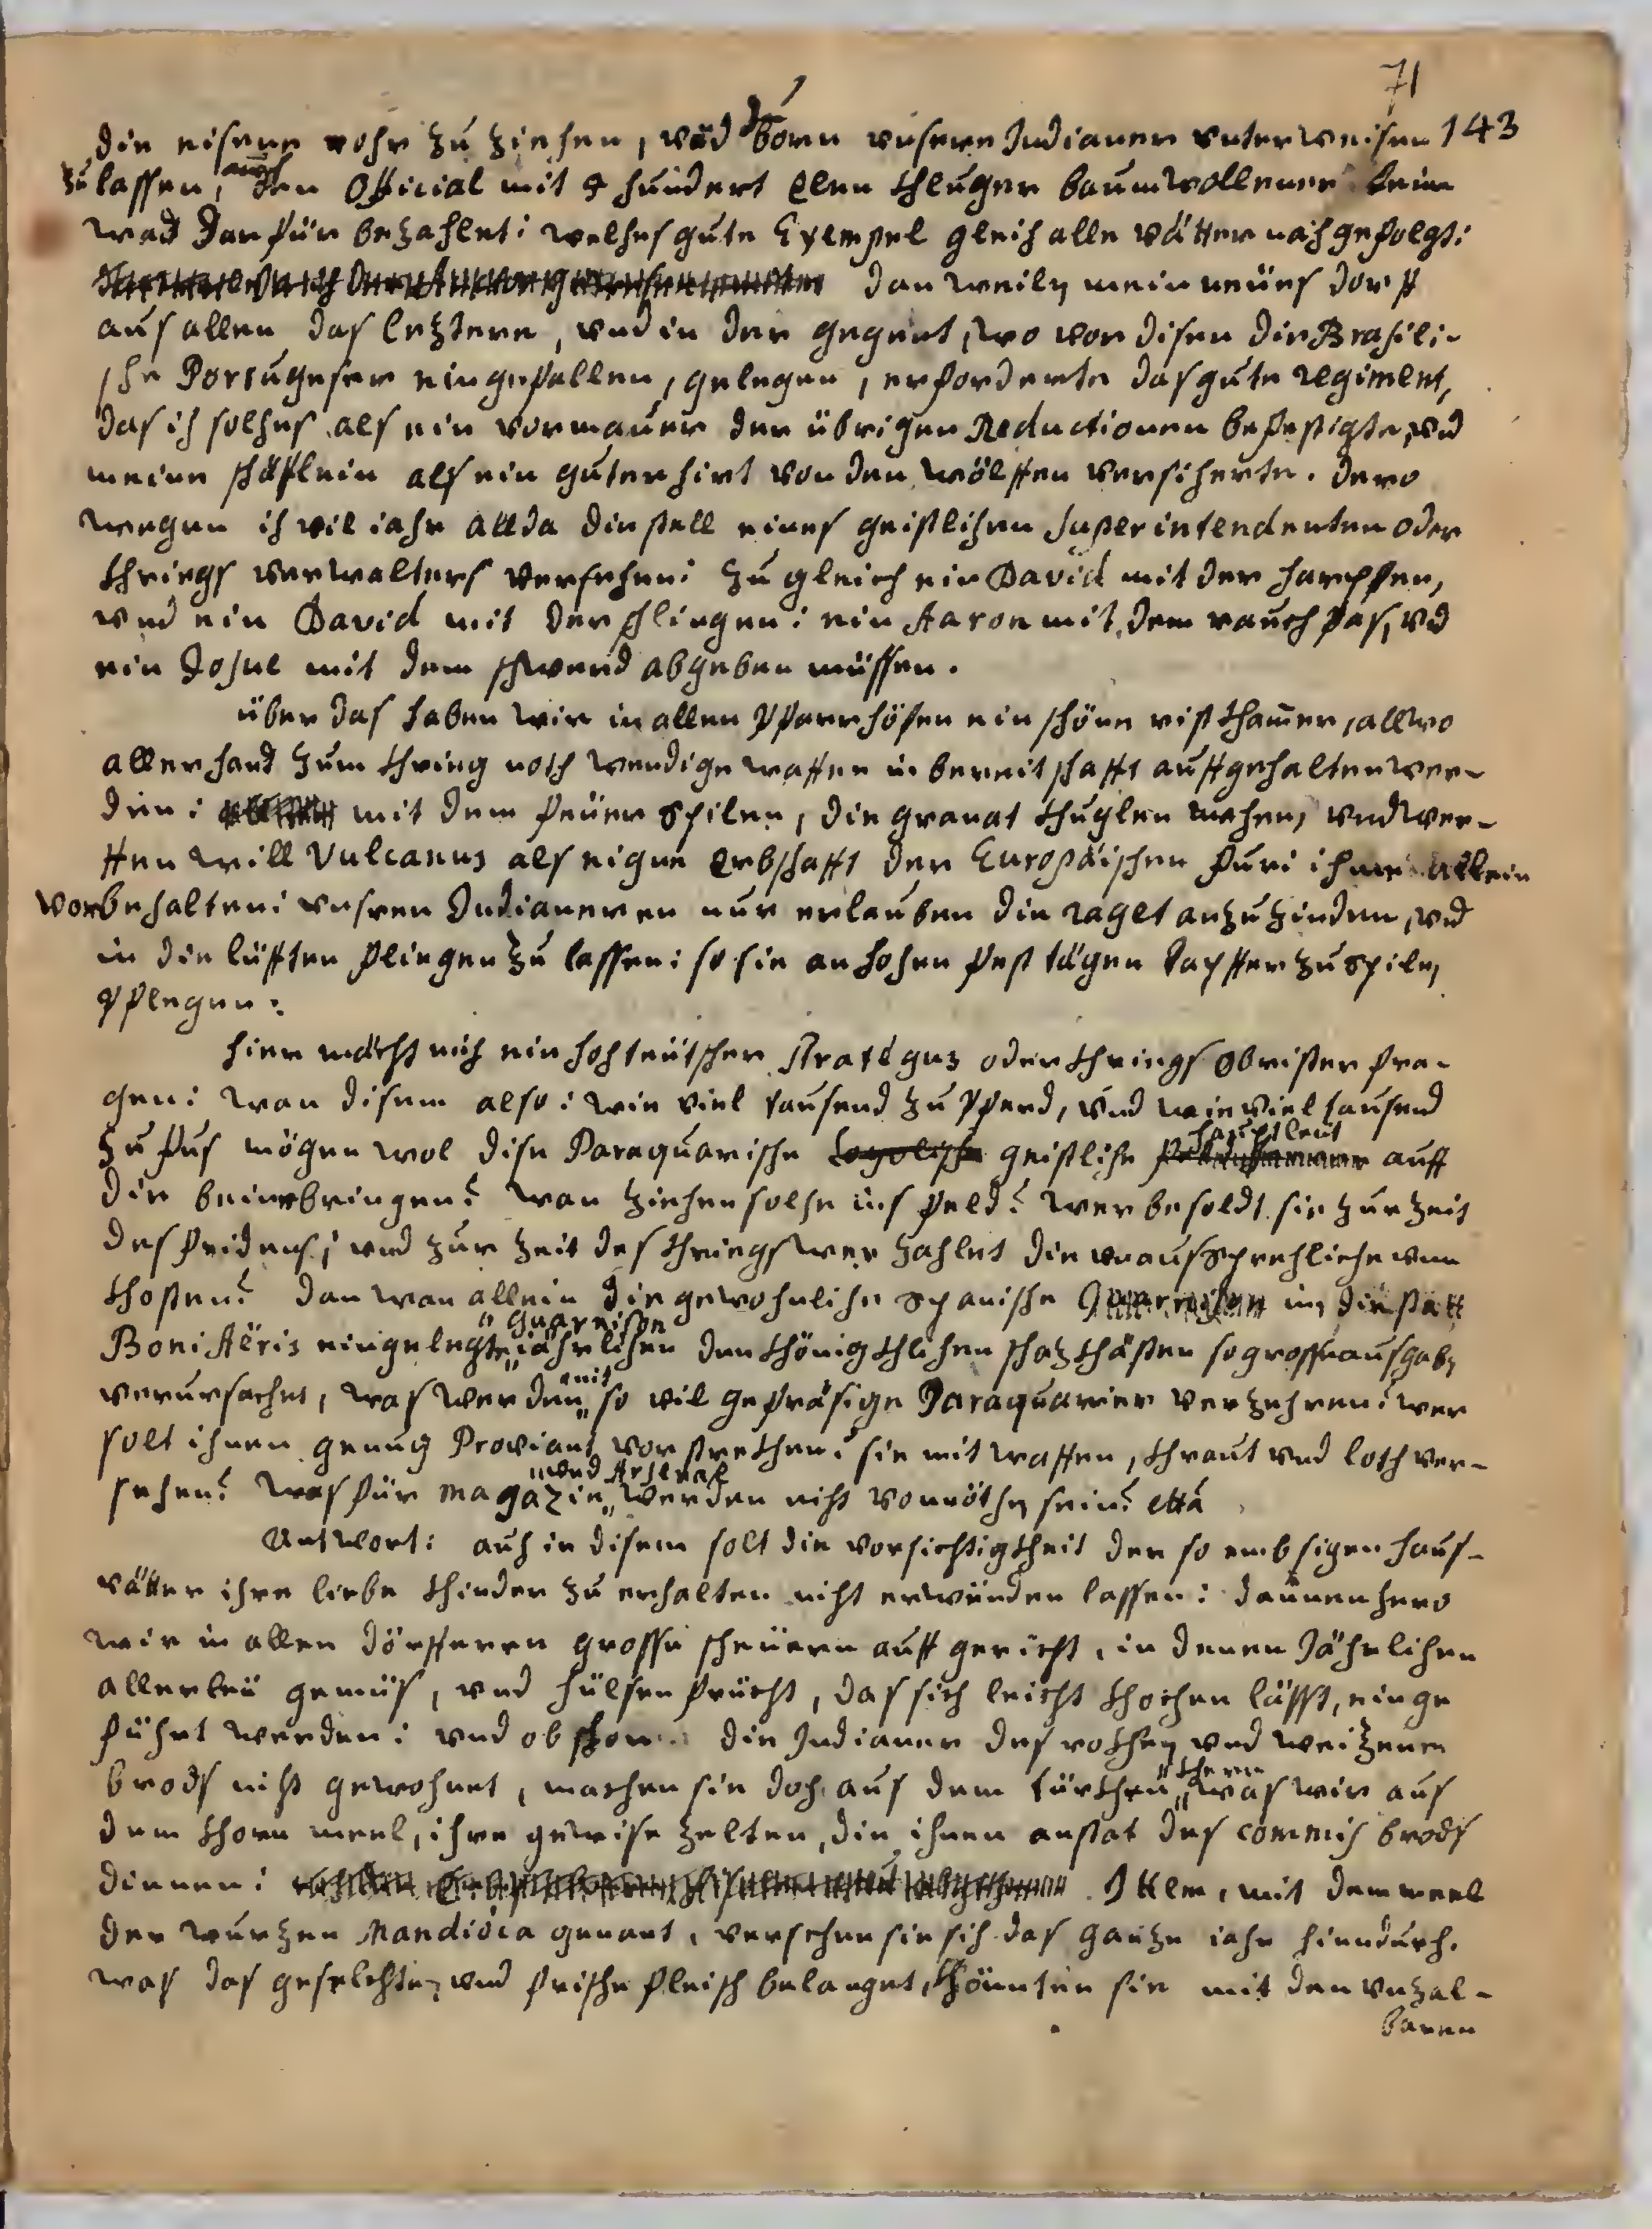 71
die eisene rohr zu ziehen, und born unsere Indianer unterweisen 143
zu lassen, auch den Official mit 4 hundert Elen khluger baumwollener lein
wad darfür bezahlet: welhes gute Exempel gleich alle vätter nachgefolgt:
dan weilen mein neües dorff
aus allen das leztere, und in der gegent, wo vor disen die Brasili-
she Portugeser eingefallen, gelegen, erforderte das gute regiment,
das ich solhes als ein vormauer der übrigen Reductionen befestigte, und
meine shäflein als ein guter hirt von den wölffen versicherte. dero
wegen ich vil iahr allda die stell eines geistlihen Superintendenten oder
khriegs verwalters versehen: zu gleich ein David mit der harpffen,
und ein David mit der shlingen: ein Aaron mit dem rauchfas, und
ein Josue mit dem shwerd abgeben müssen.
über das haben wir in allen Pfarrhöfen ein shöne ristkhamer, allwo
allerhand zum khrieg nothwendige waffen in bereitshafft auffgehalten wer-
den: mit dem feüer spilen, die granat khuglen mahen, und wer-
ffen will Vulcanus als eigne Erbshafft der Europäishen furi ihme allein
vorbehalten: unsren Indianeren nur erlauben die raget anzuzinden, und
in die lüfften fliegen zu lassen: so sie an hohen festtägen dapffer zu spilen
pflegen:
hier möcht mich ein hohteütsher Strategus oder khriegs obrister fra-
gen: wan disem also: wie viel tausend zu Pferd, und wie viel tausend
zu fus mögen wol dise Paraquarishe geistlihe haubtleut auff
die beine bringen? wan ziehen solhe ins feld? wer besoldt sie zur zeit
des fridens; und zur zeit des khriegs wer zahlet die unaussprehliche un
khosten? dan wan allein die gewohnlihe spanishe in die statt
Boni Aëris eingelegte guarnison iährlihen den khönigkhlihen shazkhästen so grosse ausgaben
verursachet, was werden mit so vil gefräsige Paraquarier verzehren? wer
solt ihnen genug Proviant vorstrekhen? sie mit waffen, khraut und loth ver-
sehen? was für magazin und Arsenal werden niht vonnöthen sein? etta
Antwort: auch in disem solt die vorsichtigkheit der so embsigen haus-
vätter ihre liebe khinder zu erhalten niht erwünden lassen: dannenhero
wir in allen dörfferen grosse sheüern auffgericht, in denen Jährlihen
allerleü gemüs, und hülsenfrücht, das sich leicht khochen lässt, einge
führt werden: und ob shon die Indianer des rothen und weizenen
brods niht gewohnet, machen sie doh aus dem türkhen khern was wir aus
dem khorn meel, ihre gewise zelten, die ihnen anstat des commis brods
dienen: Ittem, mit dem meel
der wurzen Mandióca genant, versehen sie sih das ganze iahr hiendurh.
was das geselchte, und frishe fleish belanget, khönnten sie mit den unzal-
baren